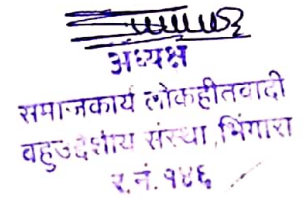 अध्यक्ष
समाजकार्य लोकहीतवादी
बहुउद्देशीय संस्था, भिंगारा
र.नं. १४६